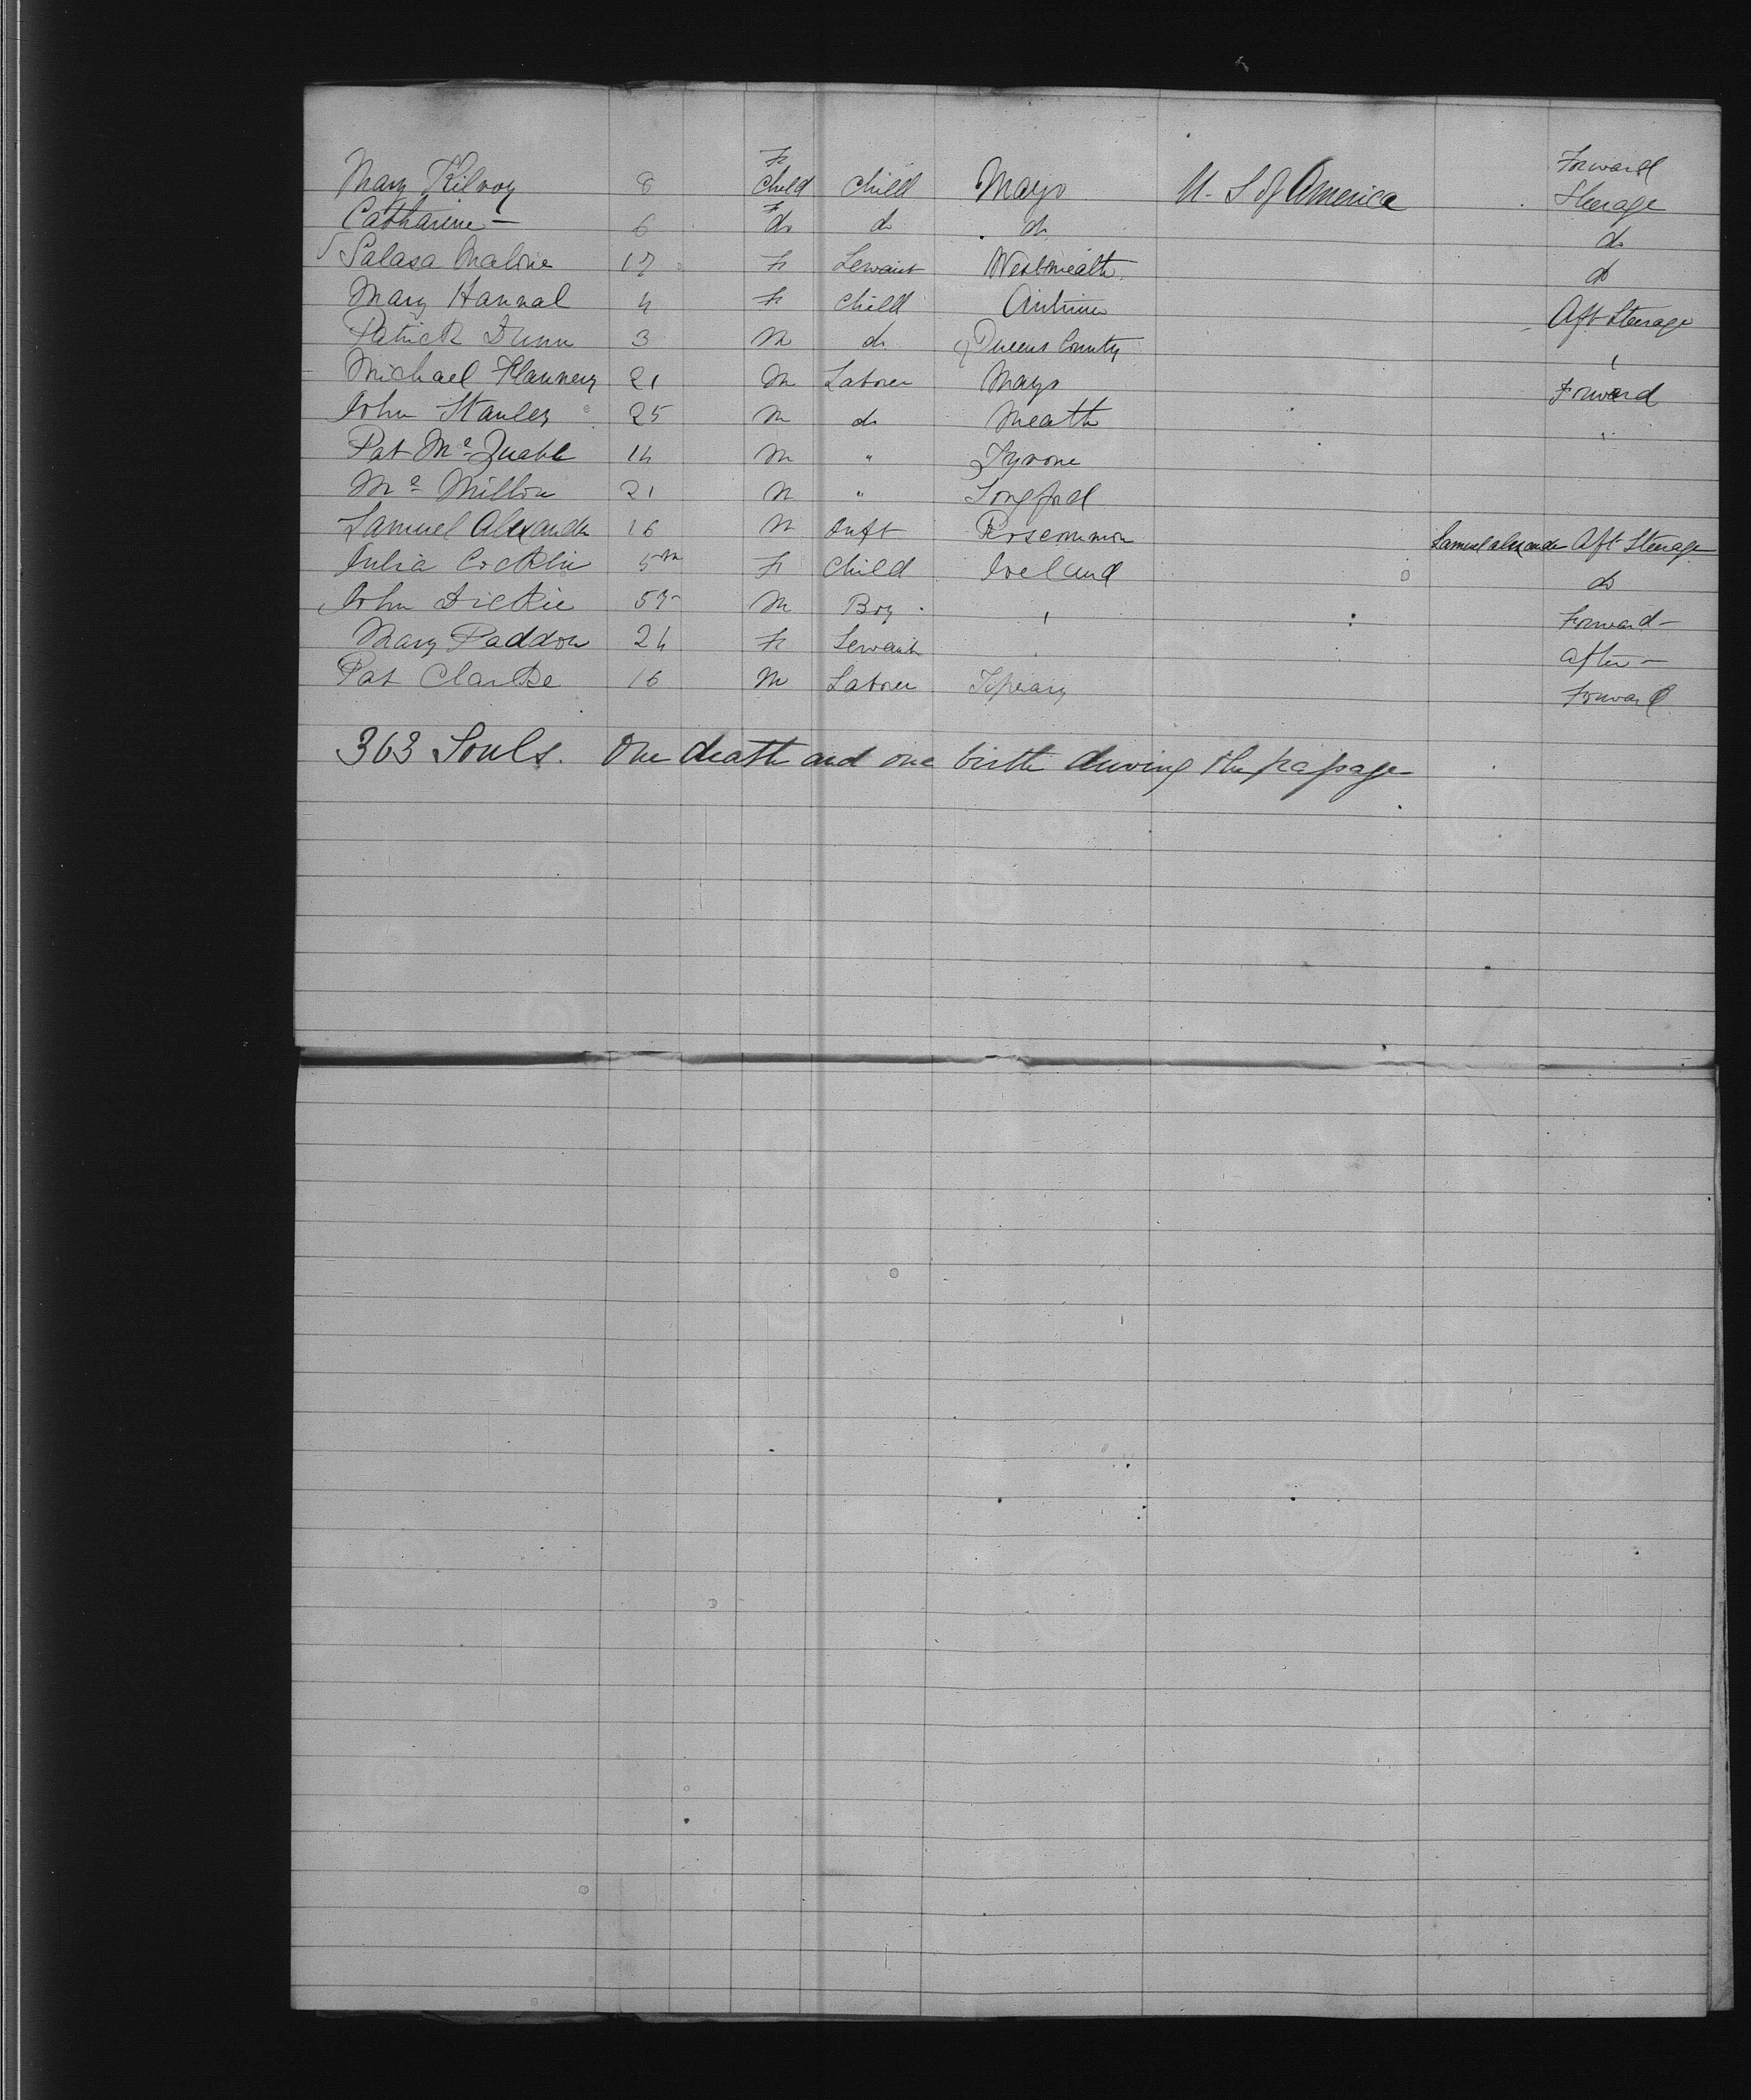 Mary Kilroy 8 F Child Child Mayo U. S of America Forward Steerage
Catharine — 6 F do do do do
Malone 17 F Servant Westmeath do
Mary Hannal 4 F Child Antrim Aft Steerage
Patrick Dunn 3 M do Queens County "
Michael Flannery 21 M Laborer Mayo Forward
John Stanley 25 M do Meath "
Pat Mc 14 M " Tyrone
Mc Millon 21 M " Longford
Samuel Alexander 16 M Roscommon Samuel Alexander Aft Steerage
Julia Cocklin 5m F Child Ireland do
John Dickie 57 M Boy " Forward —
Mary Paddon 24 F Servant " After —
Pat Clarke 16 M Laborer Tiperary Forward
363 Souls. One death and one birth during the passage